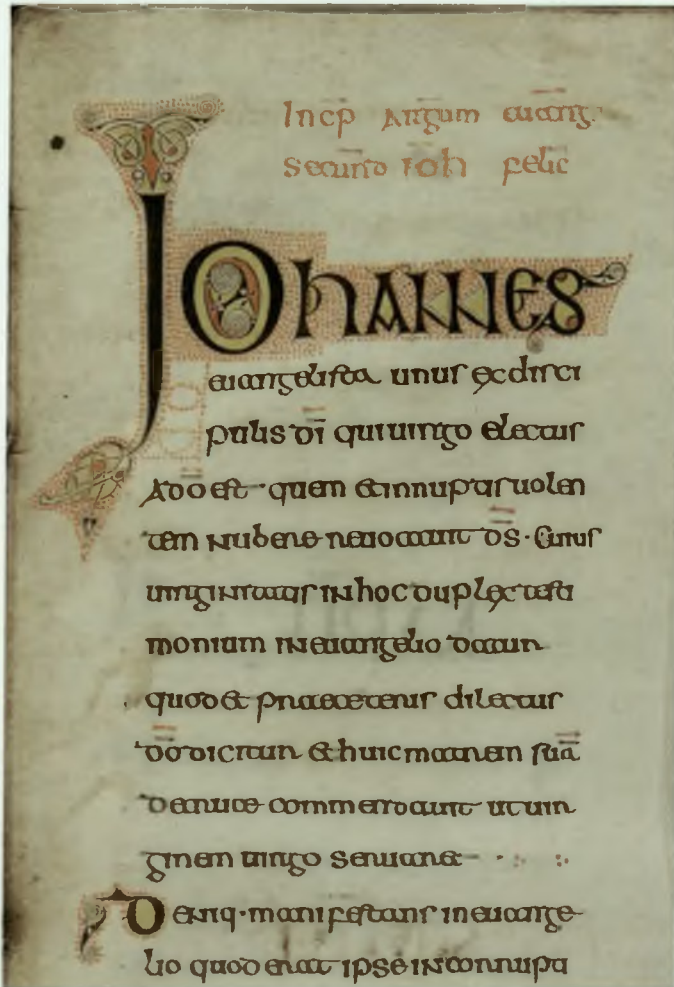 Incp Argum euang
Secund ioh felic
IOHANNES
euangelista unus ex disci
pulis di qui uirgo electus
a do est · quem et innuptiis uolen
tem nubere reuocauit ds · Cuius
uirginitatis in hoc duplex testi
monium in euangelio datur
quod et prae ceteris dilectus
do dicitur et huic matrem suā
de cruce commendauit ut uir
ginem uirgo seruaret
Deniq · manifestans in euange
lio quod erat ipse inconrupti